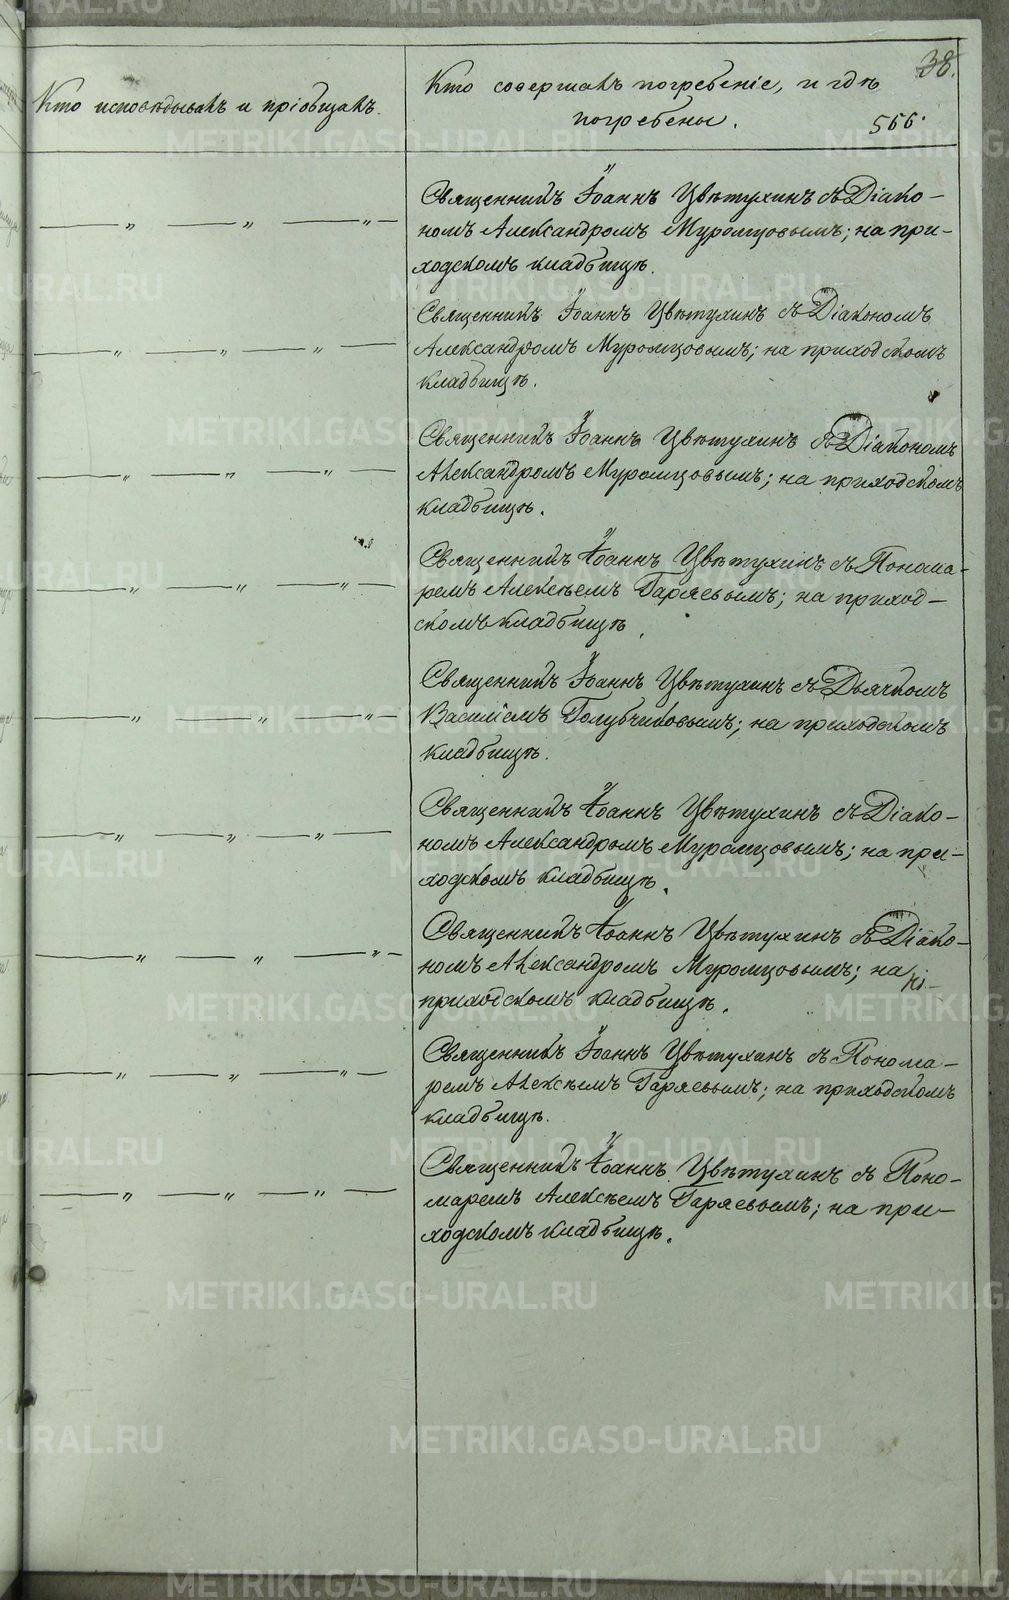 38.
566.
Кто исповѣдывалъ и пріобщалъ.
Кто совершалъ погребеніе, и гдѣ
погребены.
Священникъ Іоаннъ Цвѣтухинъ съ Діако-
номъ Александромъ Муромцовымъ; на при-
ходскомъ кладбищѣ.
Священникъ Іоаннъ Цвѣтухинъ съ Діакономъ
Александромъ Муромцовымъ; на приходскомъ
кладбищѣ.
Священникъ Іоаннъ Цвѣтухинъ съ Діакономъ
Александромъ Муромцовымъ; на приходскомъ
кладбищѣ.
Священникъ Іоаннъ Цвѣтухинъ съ Понома-
ремъ Алексѣемъ Гаряевымъ; на приход-
скомъ кладбищѣ.
Священникъ Іоаннъ Цвѣтухинъ съ Дьячкомъ
Василіемъ Голубчиковымъ; на приходскомъ
кладбищѣ.
Священникъ Іоаннъ Цвѣтухинъ съ Діако-
номъ Александромъ Муромцовымъ; на при-
ходскомъ кладбищѣ.
Священникъ Іоаннъ Цвѣтухинъ съ Діако-
номъ Александромъ Муромцовымъ; на
приходскомъ кладбищѣ.
Священникъ Іоаннъ Цвѣтухинъ съ Понома-
ремъ Алексѣемъ Гаряевымъ; на приходскомъ
кладбищѣ.
Священникъ Іоаннъ Цвѣтухинъ съ Поно-
маремъ Алексѣемъ Гаряевымъ; на при-
ходскомъ кладбищѣ.
METRIKI.GASO-URAL.RU